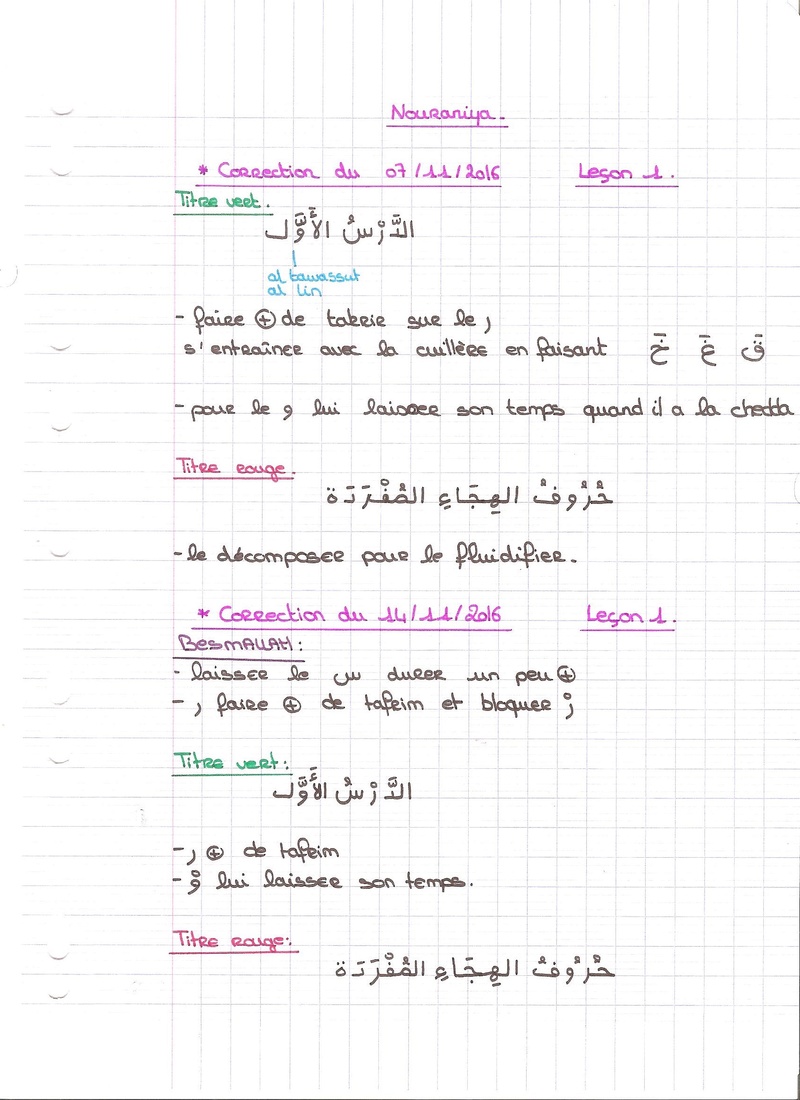 Nouraniya.
* Correction du 07/11/2016 Leçon 1.
Titre vert.
الدَّرْسُ الأَوَّل
al tawassut
al lin
- faire ⊕ de takrir sur le ر
s'entraîner avec la cuillère en faisant خَ غَ قَ
- pour le و lui laisser son temps quand il a la chedda
Titre rouge.
حُرُوفُ الهِجَاءِ المُفْرَدَة
- le décomposer pour le fluidifier.
* Correction du 14/11/2016 Leçon 1.
BESMALLAH:
- laisser le س durer un peu ⊕
- ر faire ⊕ de tafrim et bloquer رْ
Titre vert:
الدَّرْسُ الأَوَّل
- ر ⊕ de tafrim
- وَّ lui laisser son temps.
Titre rouge:
حُرُوفُ الهِجَاءِ المُفْرَدَة